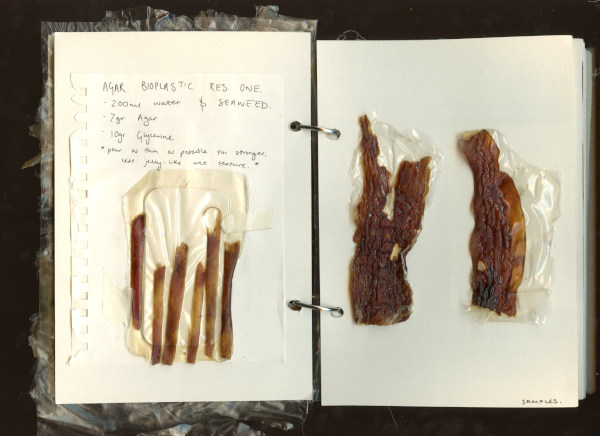 AGAR BIOPLASTIC RES. ONE.
- 200ml water & SEAWEED.
- 7gr Agar
- 10gr Glycerine
* pour as thin as possible for stronger,
less jelly-like wet texture. *
SAMPLES.